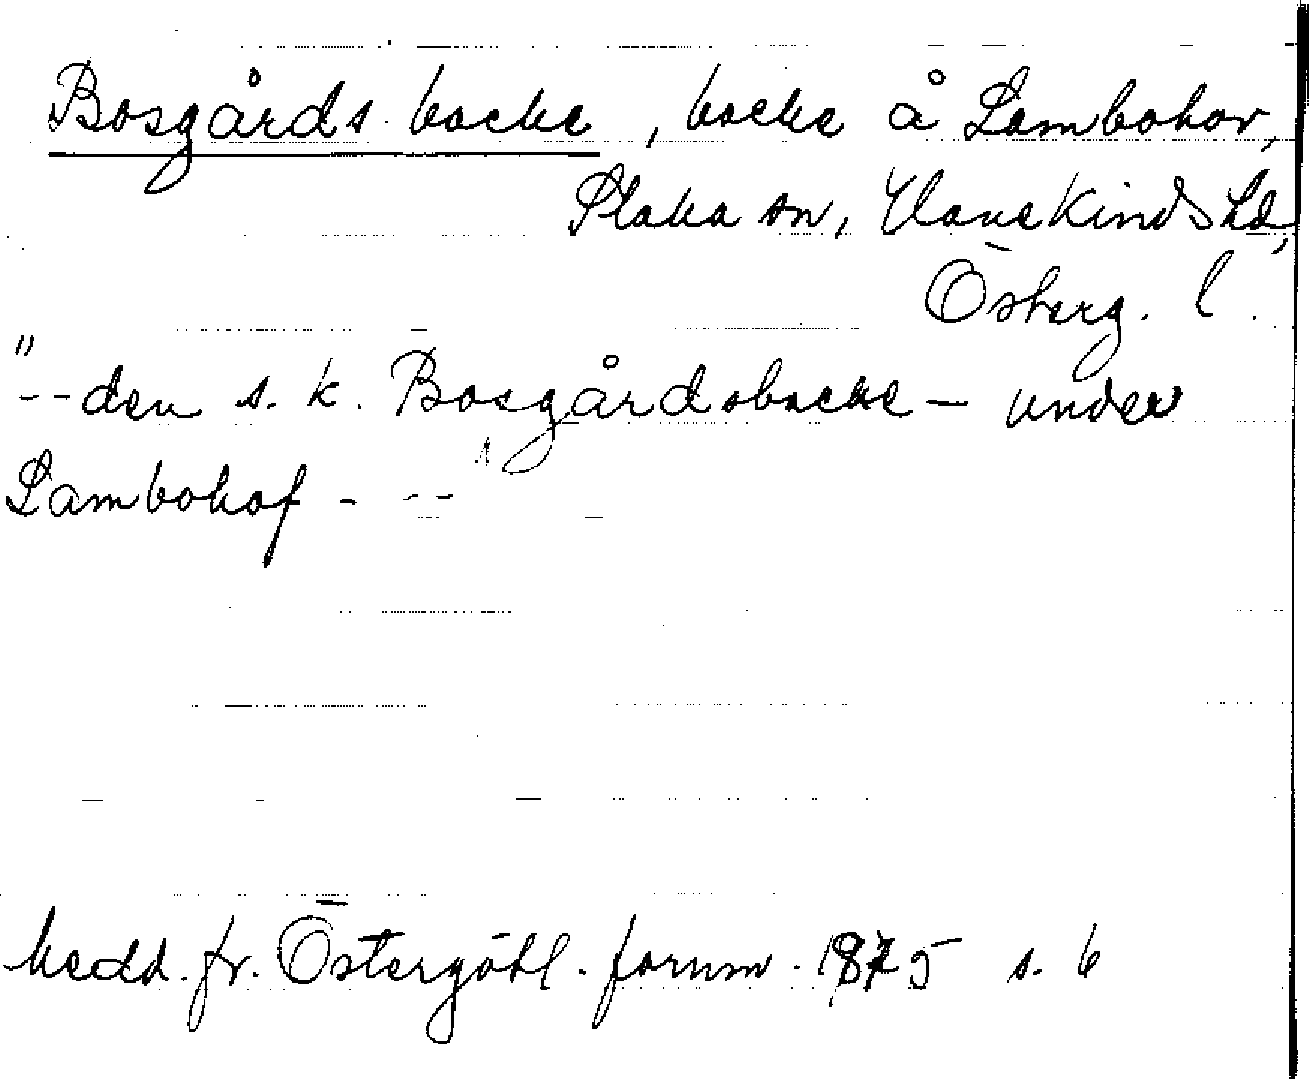 Bosgårds backe, backe å Lambohov,
Slaka sn, Hanekinds hd,
Österg. l.
"--den s. k. Bosgårdsbacke – under
Lambohof - --"
Medd. fr. Östergötl. fornm. 1875 s. 6